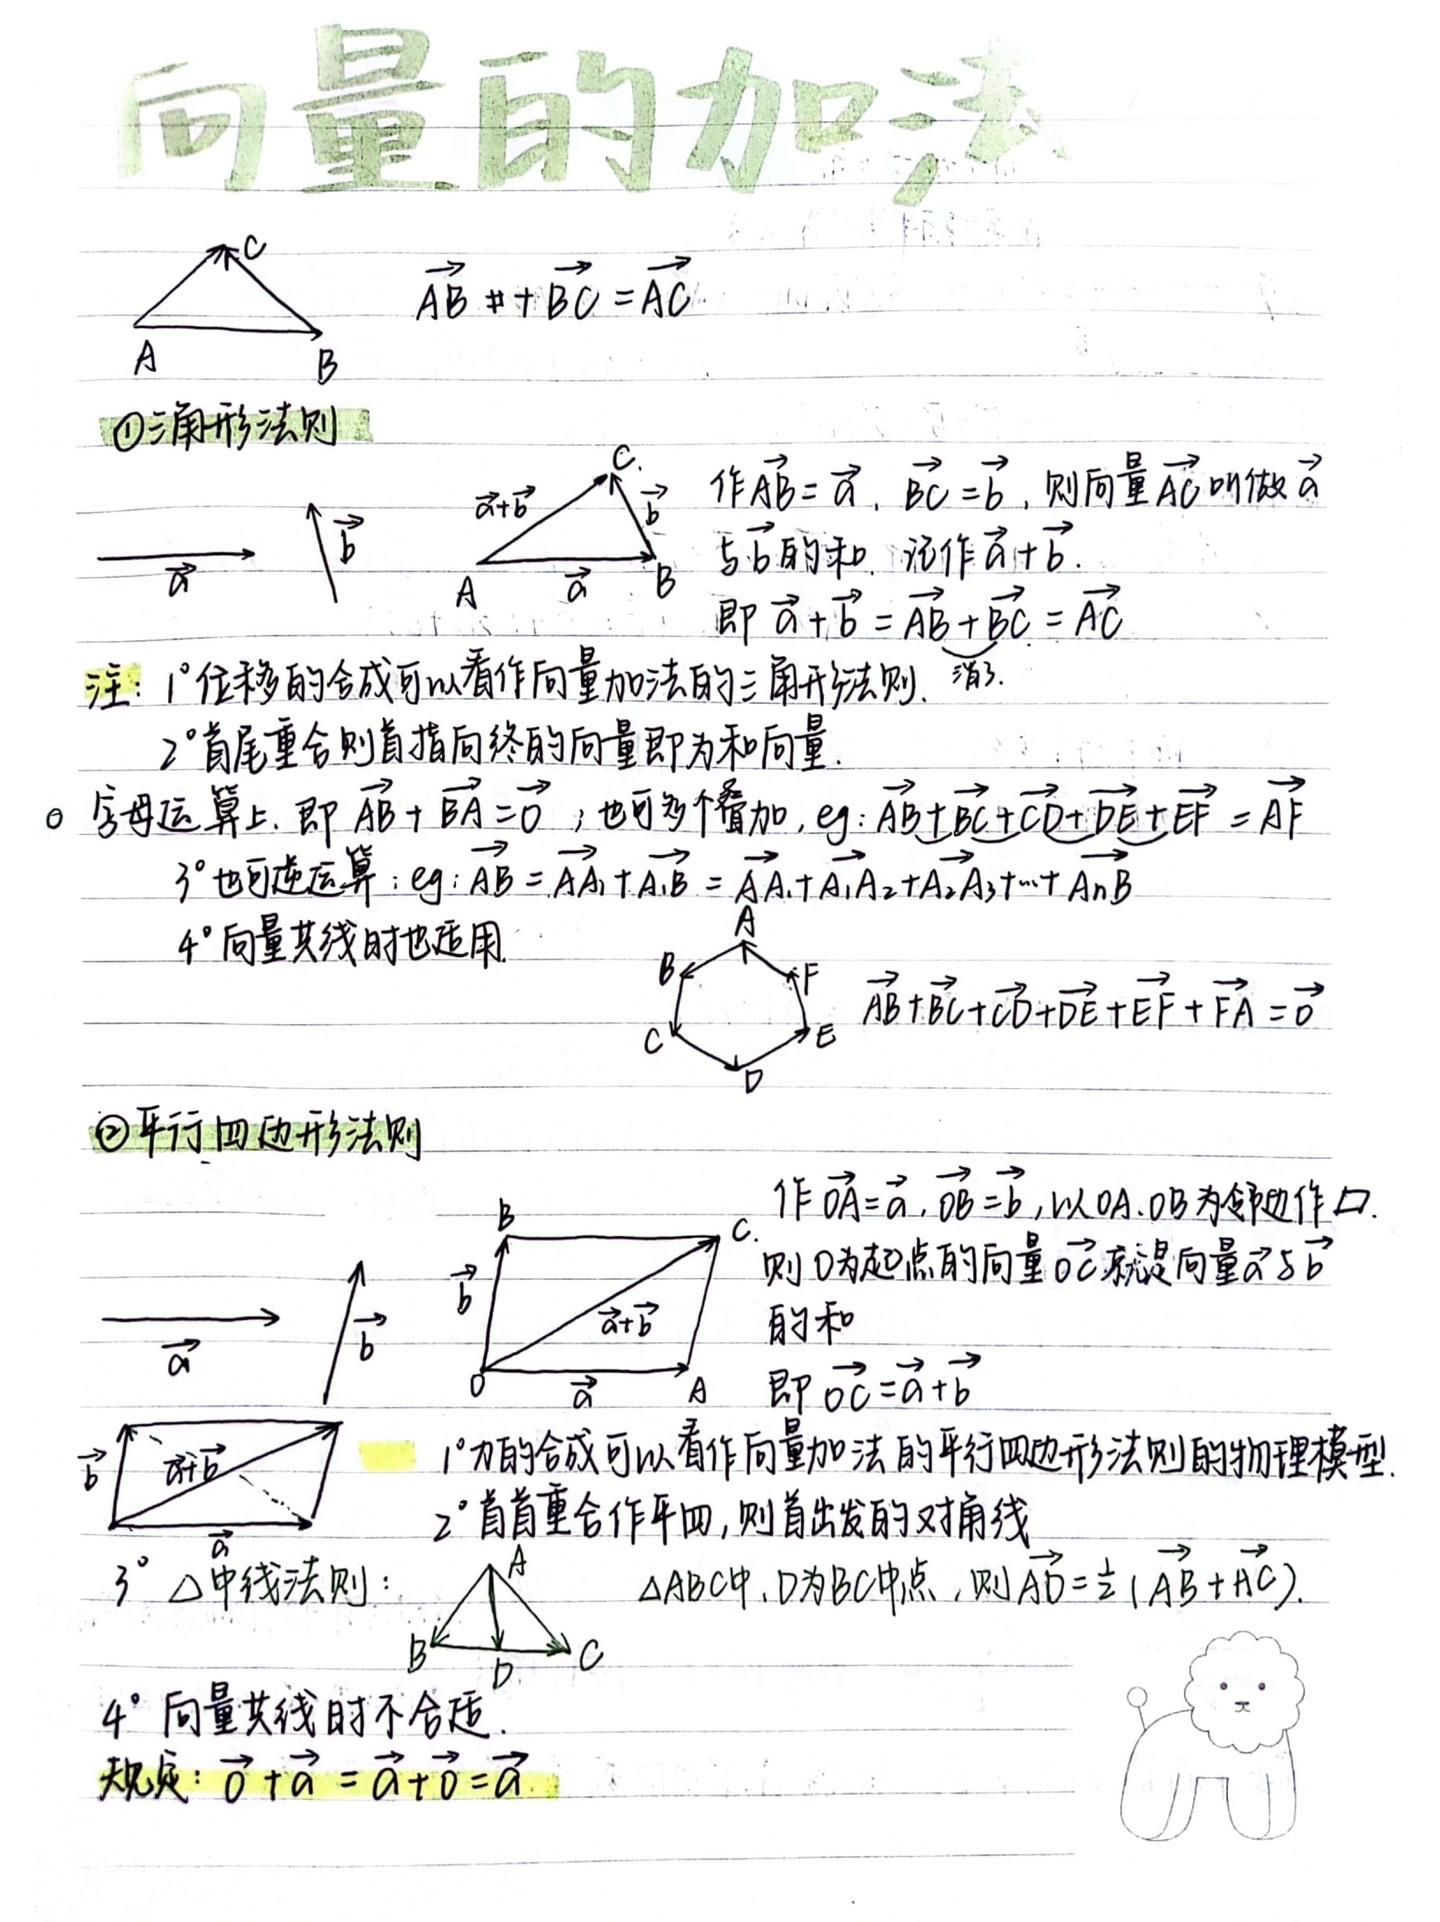 向量的加法
C
A
B
$\overrightarrow{AB} + \overrightarrow{BC} = \overrightarrow{AC}$
①三角形法则
$\vec{a}$
$\vec{b}$
$\vec{a}+\vec{b}$
C.
$\vec{b}$
A
$\vec{a}$
B
作$\overrightarrow{AB}=\vec{a}$, $\overrightarrow{BC}=\vec{b}$, 则向量$\overrightarrow{AC}$叫做$\vec{a}$
与$\vec{b}$的和. 记作$\vec{a}+\vec{b}$.
即 $\vec{a}+\vec{b}=\overrightarrow{AB}+\overrightarrow{BC}=\overrightarrow{AC}$
消了.
注: 1°位移的合成可以看作向量加法的三角形法则.
2°首尾重合则首指向终的向量即为和向量.
字母运算上. 即 $\overrightarrow{AB}+\overrightarrow{BA}=\vec{0}$ ; 也可多个叠加, eg: $\overrightarrow{AB}+\overrightarrow{BC}+\overrightarrow{CD}+\overrightarrow{DE}+\overrightarrow{EF}=\overrightarrow{AF}$
3°也可逆运算: eg: $\overrightarrow{AB}=\overrightarrow{AA_1}+\overrightarrow{A_1B}=\overrightarrow{AA_1}+\overrightarrow{A_1A_2}+\overrightarrow{A_2A_3}+\cdots+\overrightarrow{A_nB}$
4°向量共线时也适用.
A
B
F
C
E
D
$\overrightarrow{AB}+\overrightarrow{BC}+\overrightarrow{CD}+\overrightarrow{DE}+\overrightarrow{EF}+\overrightarrow{FA}=\vec{0}$
②平行四边形法则
$\vec{a}$
$\vec{b}$
B
C.
$\vec{b}$
$\vec{a}+\vec{b}$
O
$\vec{a}$
A
作$\overrightarrow{OA}=\vec{a}$, $\overrightarrow{OB}=\vec{b}$, 以OA.OB为邻边作▱.
则O为起点的向量$\overrightarrow{OC}$就是向量$\vec{a}$与$\vec{b}$
的和
即 $\overrightarrow{OC}=\vec{a}+\vec{b}$
$\vec{b}$
$\vec{a}+\vec{b}$
$\vec{a}$
1°力的合成可以看作向量加法的平行四边形法则的物理模型.
2°首首重合作平四, 则首出发的对角线
3° △中线法则:
A
B
D
C
△ABC中, D为BC中点, 则$\overrightarrow{AD}=\frac{1}{2}(\overrightarrow{AB}+\overrightarrow{AC})$.
4° 向量共线时不合适.
规定: $\vec{0}+\vec{a}=\vec{a}+\vec{0}=\vec{a}$.